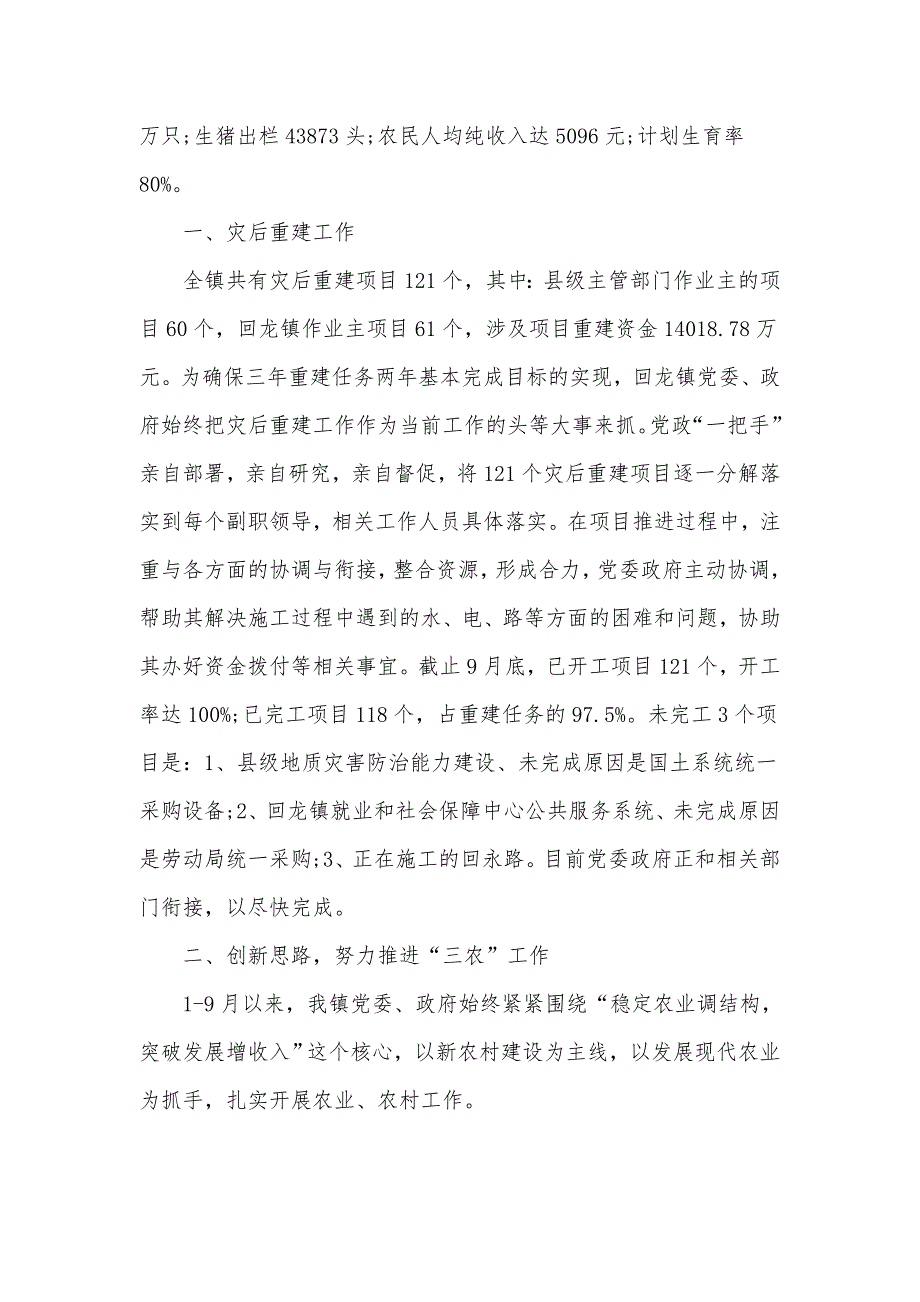 万只;生猪出栏 43873 头;农民人均纯收入达 5096 元;计划生育率
80%。
一、灾后重建工作
全镇共有灾后重建项目 121 个，其中：县级主管部门作业主的项
目 60 个，回龙镇作业主项目 61 个，涉及项目重建资金 14018.78 万
元。为确保三年重建任务两年基本完成目标的实现，回龙镇党委、政
府始终把灾后重建工作作为当前工作的头等大事来抓。党政“一把手”
亲自部署，亲自研究，亲自督促，将 121 个灾后重建项目逐一分解落
实到每个副职领导，相关工作人员具体落实。在项目推进过程中，注
重与各方面的协调与衔接，整合资源，形成合力，党委政府主动协调，
帮助其解决施工过程中遇到的水、电、路等方面的困难和问题，协助
其办好资金拨付等相关事宜。截止 9 月底，已开工项目 121 个，开工
率达 100%;已完工项目 118 个，占重建任务的 97.5%。未完工 3 个项
目是：1、县级地质灾害防治能力建设、未完成原因是国土系统统一
采购设备;2、回龙镇就业和社会保障中心公共服务系统、未完成原因
是劳动局统一采购;3、正在施工的回永路。目前党委政府正和相关部
门衔接，以尽快完成。
二、创新思路，努力推进“三农”工作
1-9 月以来，我镇党委、政府始终紧紧围绕“稳定农业调结构，
突破发展增收入”这个核心，以新农村建设为主线，以发展现代农业
为抓手，扎实开展农业、农村工作。